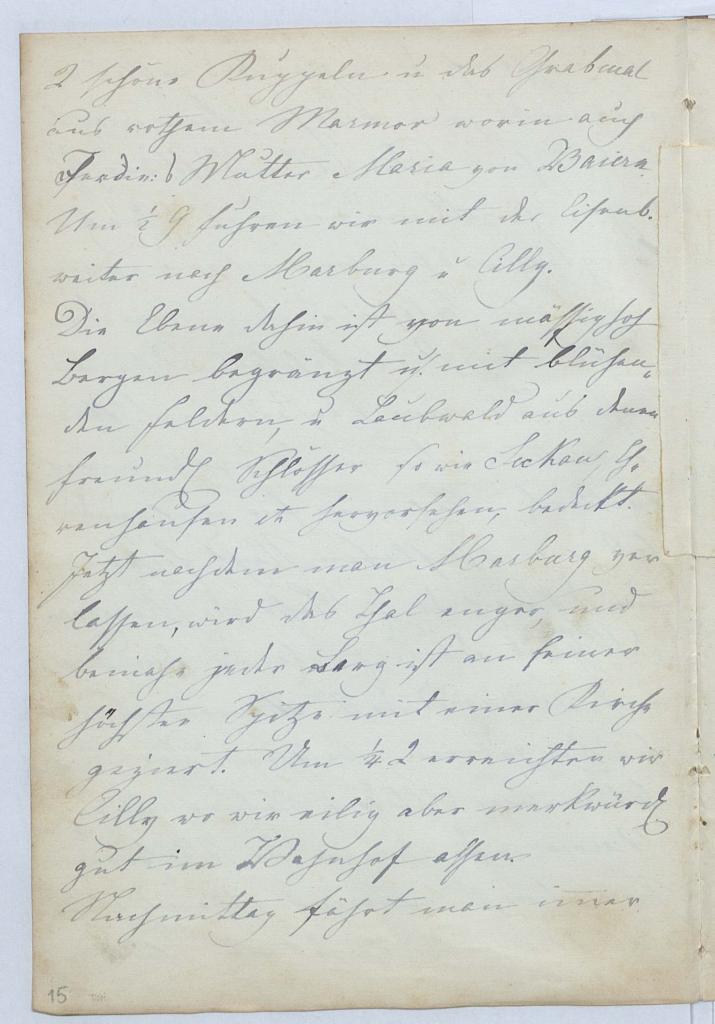 2 schöne Kuppeln u das Grabmal
aus rothem Marmor worin auch
Ferdin:s Mutter Maria von Baiern
Um ½ 9 fuhren wir mit der Eisenb.
weiter nach Marburg u Cilly.
Die Ebene dahin ist von mässig hoh
Bergen begränzt u. mit blühen„
den Feldern, u Laubwald aus denen
freundl Schlösser so wie Seckau, Eh„
renhausen etc hervorsehen, bedeckt.
Jetzt nachdem man Marburg ver
lassen, wird das Thal enger, und
beinahe jeder Berg ist an seiner
höchsten Spitze mit einer Kirche
geziert. Um ¼ 2 erreichten wir
Cilly wo wir eilig aber merkwürd
gut im Bahnhof assen.
Nachmittag fährt man im̅er
15